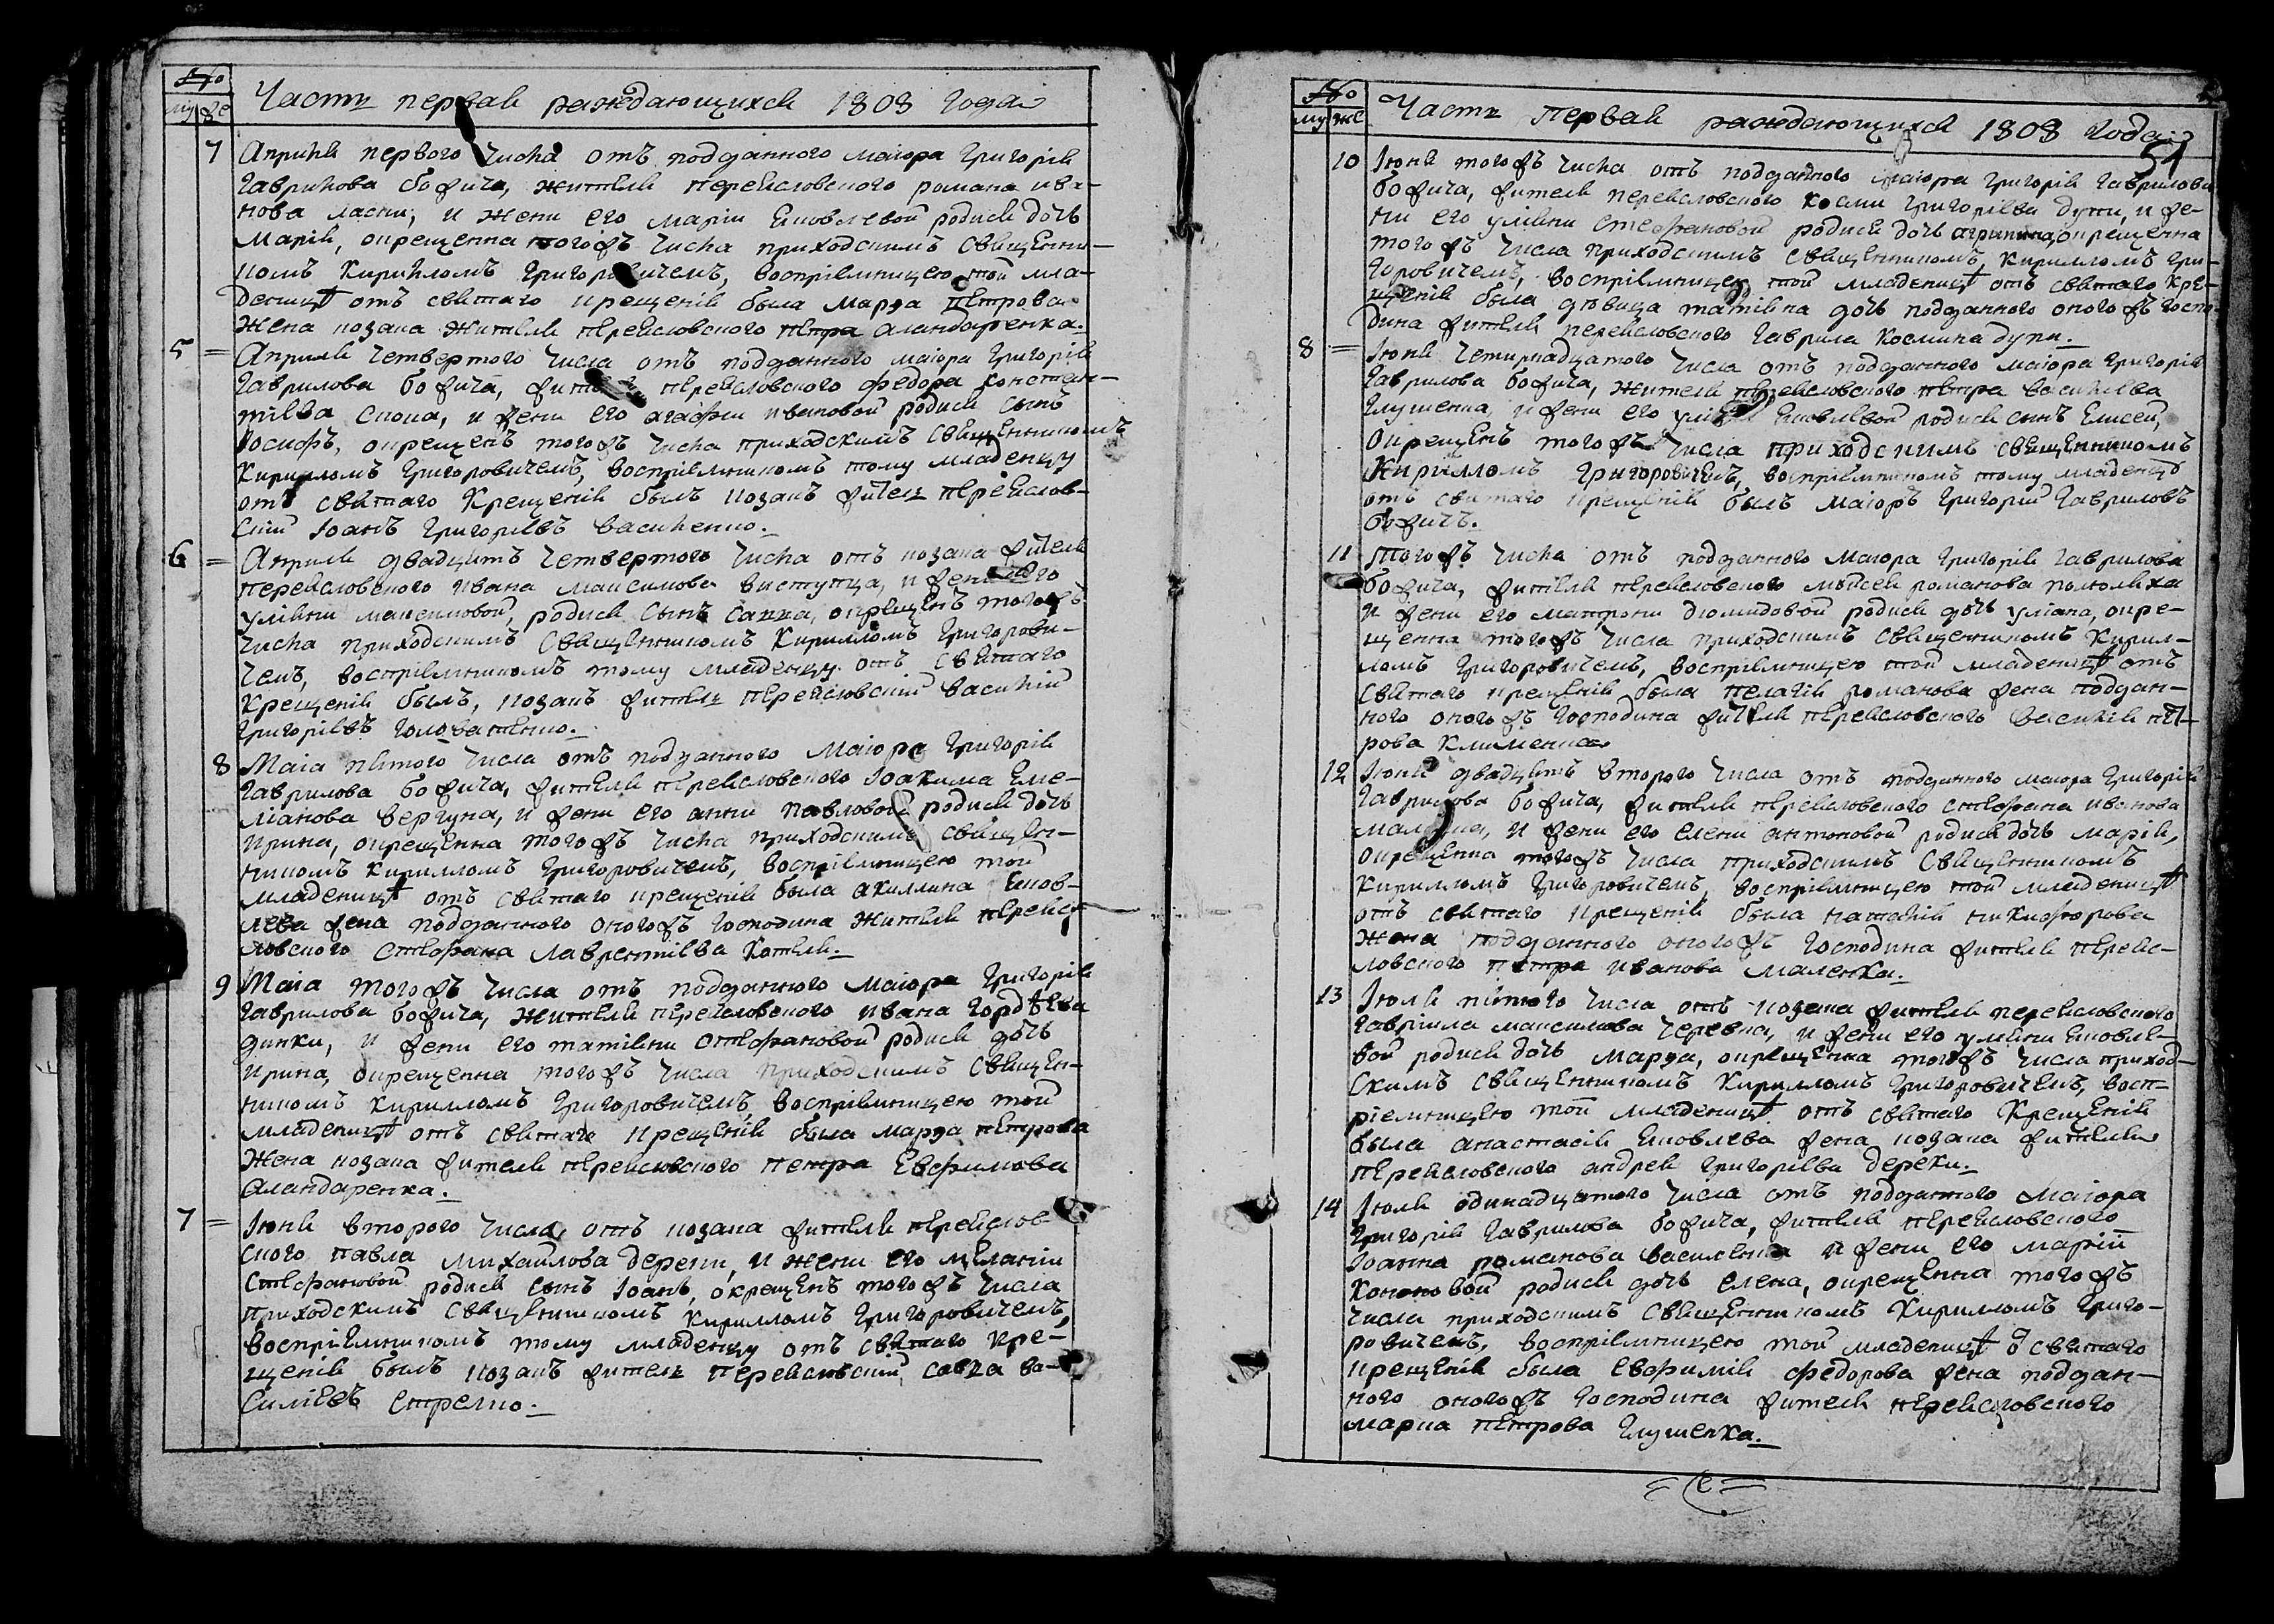 №
му же
Часть первая раждающихся 1808 года
7 Априля первого числа отъ подданного маіора Григорія
Гаврилова Божича, жителя переясловского романа ива-
нова ласки, и жени его маріи яковлевой родися дочь
Марія, окрещенна тогожъ числа приходскимъ священни-
комъ Кирилломъ Григоровичемъ, воспріемницею той мла-
деницѣ отъ святаго крещенія была марфа петрова
жена козака жителя переясловского петра аландаренка.
5 = Апреля четвертого числа отъ подданного маіора Григорія
Гаврилова божича, жителя переясловского федора констан-
тіева скока, и жени его агафіи ивановой родися сынъ
Іосифъ, окрещенъ тогожъ числа приходскимъ священникомъ
Кирилломъ Григоровичемъ, воспріемникомъ тому младенцу
отъ святаго Крещенія былъ козакъ житель переяслов-
скій Іоанъ Григоріевъ василенко.
6 = Априля двадцять четвертого числа отъ козака жителя
переясловского ивана максимова виступца, и жени его
уліяни максимовой, родися сынъ савва, окрещенъ тогожъ
числа приходскимъ священникомъ Кирилломъ Григорови-
чемъ, воспріемникомъ тому младенцу отъ святаго
Крещенія былъ, козакъ житель переясловскій василій
Григоріевъ головатенко.
8 Маіа пятого числа отъ подданного маіора Григорія
Гаврилова божича, жителя переясловского Іоакима Еме-
ліанова вергуна, и жени его анни павловой родися дочь
ирина, окрещенна тогожъ числа приходскимъ священ-
никомъ Кирилломъ Григоровичемъ, воспріемницею той
младеницѣ отъ святаго крещенія была акиллина яков-
лева жена подданного оногожъ господина жителя переяс-
ловского стефана лаврентіева Котля.
9 Маіа тогожъ числа отъ подданного маіора Григорія
Гаврилова божича, жителя переясловского ивана гордѣева
динки, и жени его татіяни стефановой родися дочь
ирина, окрещенна тогожъ числа приходскимъ священ-
никомъ Кирилломъ Григоровичемъ, воспріемницею той
младеницѣ отъ святаго крещенія была марфа петрова
жена козака жителя переясловского петра Евфимова
аландаренка.
7 = Іюня второго числа, отъ козака жителя переяслов-
ского павла михайлова дереки, и жени его меланіи
стефановой родися сынъ Іоанъ, окрещенъ тогожъ числа
приходскимъ священникомъ Кирилломъ Григоровичемъ,
воспріемникомъ тому младенцу отъ святаго кре-
щенія былъ козакъ житель переясловскій, савва ва-
силіевъ стрелко.
№
му же
Часть первая раждающихся 1808 года
51
10 Іюня тогожъ числа отъ подданного маіора Григорія Гаврилова
божича, жителя переясловского косми Григоріева дупи, и же-
ни его уліяни стефановой родися дочь агрипина, окрещенна
тогожъ числа приходскимъ священникомъ, Кирилломъ Гри-
горовичемъ, воспріемницею той младеницѣ отъ святаго Кре-
щенія была дѣвица татіяна дочь подданного оногожъ госпо-
дина жителя переясловского гаврила космина дупи.
8 = Іюня четирнадцатого числа отъ подданного маіора Григорія
Гаврилова божича, жителя переясловского петра василіева
Глушенка, и жени его яковлевой родися сынъ Елисей,
окрещенъ тогожъ числа приходскимъ священникомъ
Кирилломъ Григоровичемъ, воспріемникомъ тому младенцу
отъ святаго крещенія былъ маіоръ Григорій Гавриловъ
божичъ.
11 Тогожъ числа отъ подданного маіора Григорія Гаврилова
божича, жителя переясловского мойсея романова
и жени его матрони дюмидовой родися дочь уліана, окре-
щенна тогожъ числа приходскимъ священникомъ Кирил-
ломъ Григоровичемъ, воспріемницею той младеницѣ отъ
святаго крещенія была пелагія романова жена поддан-
ного оногожъ господина жителя переясловского василія пет-
рова Клименка
12 Іюня двадцять второго числа отъ подданного маіора Григорія
Гаврилова божича, жителя переясловского стефана иванова
и жени его елени антоновой родися дочь марія,
окрещенна тогожъ числа приходскимъ священникомъ
Кирилломъ Григоровичемъ, воспріемницею той младеницѣ
отъ святаго крещенія была наталія никифорова
жена подданного оногожъ господина жителя переяс-
ловского петра иванова маленка.
13 Іюля пятого числа отъ козака жителя переясловского
гавріила максимова черевка, и жени его уліяни яковле-
вой родися дочь марфа, окрещенна тогожъ числа приход-
скимъ священникомъ Кирилломъ Григоровичемъ, восп-
ріемницею той младеницѣ отъ святаго Крещенія
была анастасія яковлева жена козака жителя
переясловского андрея Григоріева дереки.
14 Іюля одинадцатого числа отъ подданного маіора
Григорія Гаврилова божича, жителя переясловского
Іоанна романова василенка и жени его маріи
Кононовой родися дочь елена, окрещенна тогожъ
числа приходскимъ священникомъ Кирилломъ Григо-
ровичемъ, воспріемницею той младеницѣ ѿ святаго
крещенія была Евфимія федорова жена поддан-
ного оногожъ господина жителя переясловского
марка петрова Глушенка.